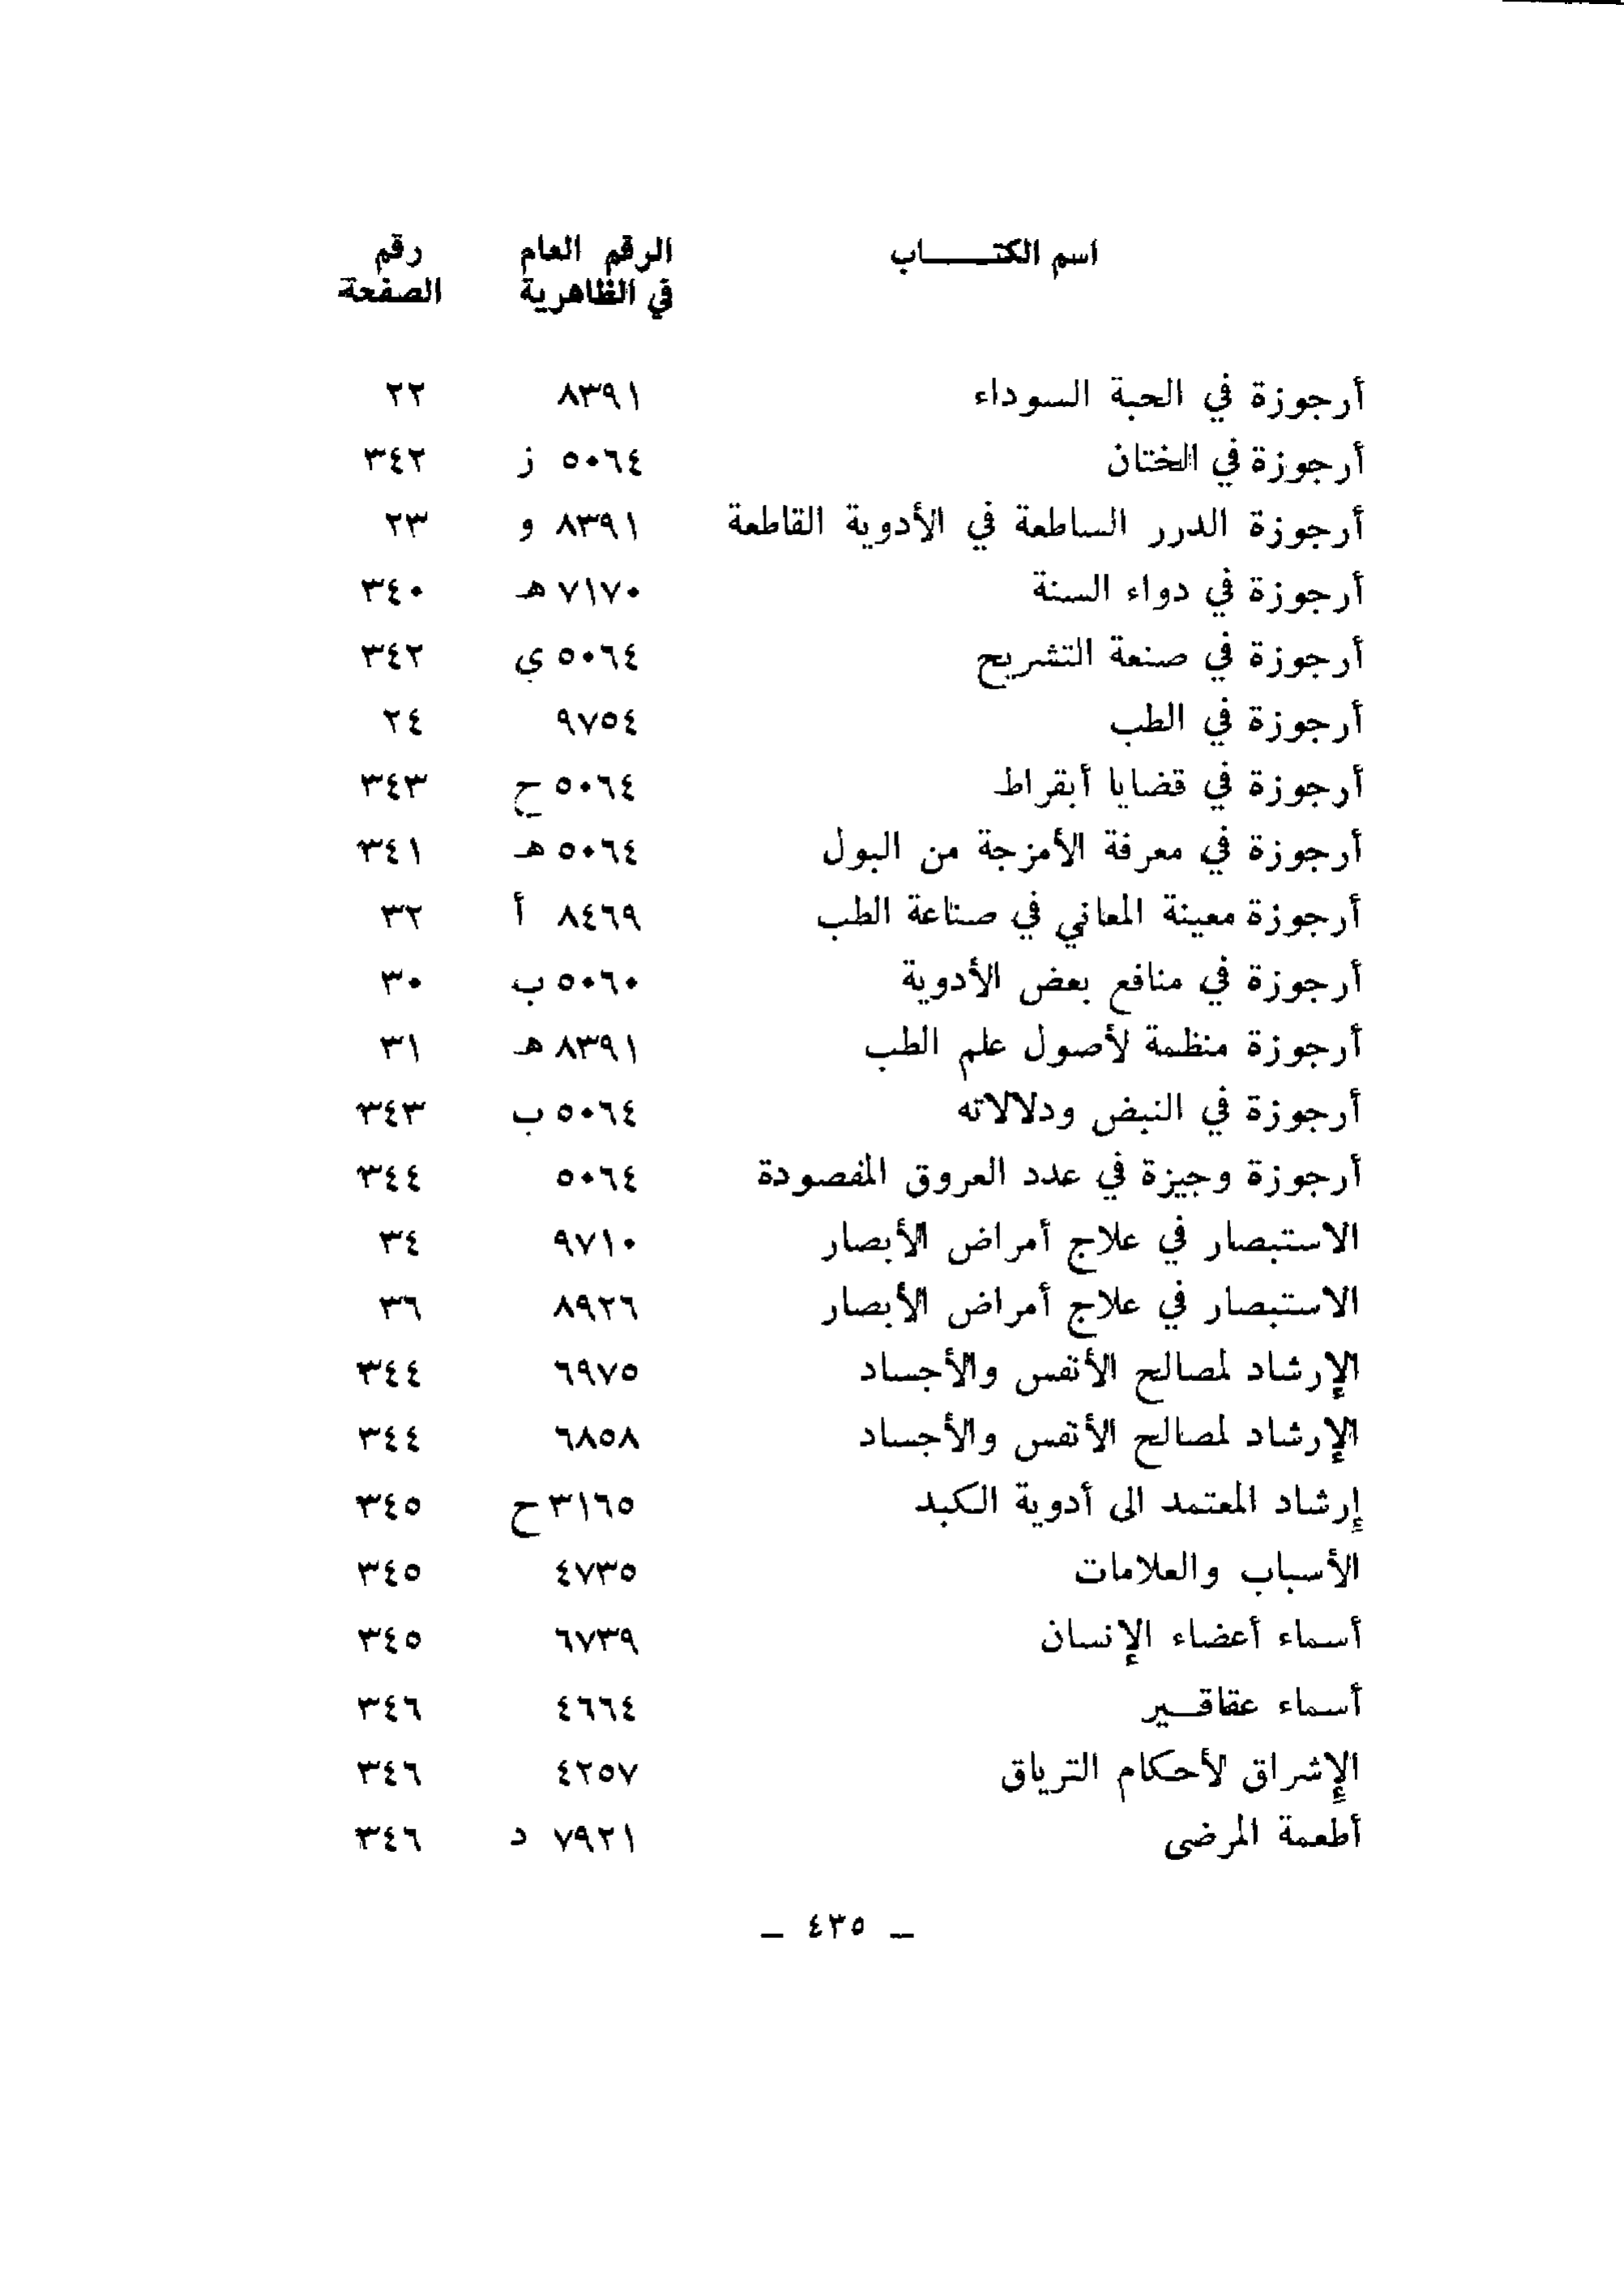 اسم الكتـــــاب الرقم العام رقم
في الظاهرية الصفحة
أرجوزة في الحبة السوداء ٨٣٩١ ٢٢
أرجوزة في الختان ٥٠٦٤ ز ٣٤٢
أرجوزة الدرر الساطعة في الأدوية القاطعة ٨٣٩١ و ٢٣
أرجوزة في دواء السنة ٧١٧٠ هـ ٣٤٠
أرجوزة في صنعة التشريح ٥٠٦٤ ي ٣٤٢
أرجوزة في الطب ٩٧٥٤ ٢٤
أرجوزة في قضايا أبقراط ٥٠٦٤ ح ٣٤٣
أرجوزة في معرفة الأمزجة من البول ٥٠٦٤ هـ ٣٤١
أرجوزة معينة المعاني في صناعة الطب ٨٤٦٩ أ ٣٢
أرجوزة في منافع بعض الأدوية ٥٠٦٠ ب ٣٠
أرجوزة منظمة لأصول علم الطب ٨٣٩١ هـ ٣١
أرجوزة في النبض ودلالاته ٥٠٦٤ ب ٣٤٣
أرجوزة وجيزة في عدد العروق المفصودة ٥٠٦٤ ٣٤٤
الاستبصار في علاج أمراض الأبصار ٩٧١٠ ٣٤
الاستبصار في علاج أمراض الأبصار ٨٩٢٦ ٣٦
الإرشاد لمصالح الأنفس والأجساد ٦٩٧٥ ٣٤٤
الإرشاد لمصالح الأنفس والأجساد ٦٨٥٨ ٣٤٤
إرشاد المعتمد الى أدوية الكبد ٣١٦٥ ح ٣٤٥
الأسباب والعلامات ٤٧٣٥ ٣٤٥
أسماء أعضاء الإنسان ٦٧٣٩ ٣٤٥
أسماء عقاقـــير ٤٦٦٤ ٣٤٦
الإشراق لأحكام الترياق ٤٢٥٧ ٣٤٦
أطعمة المرضى ٧٩٢١ د ٣٤٦
— ٤٣٥ —